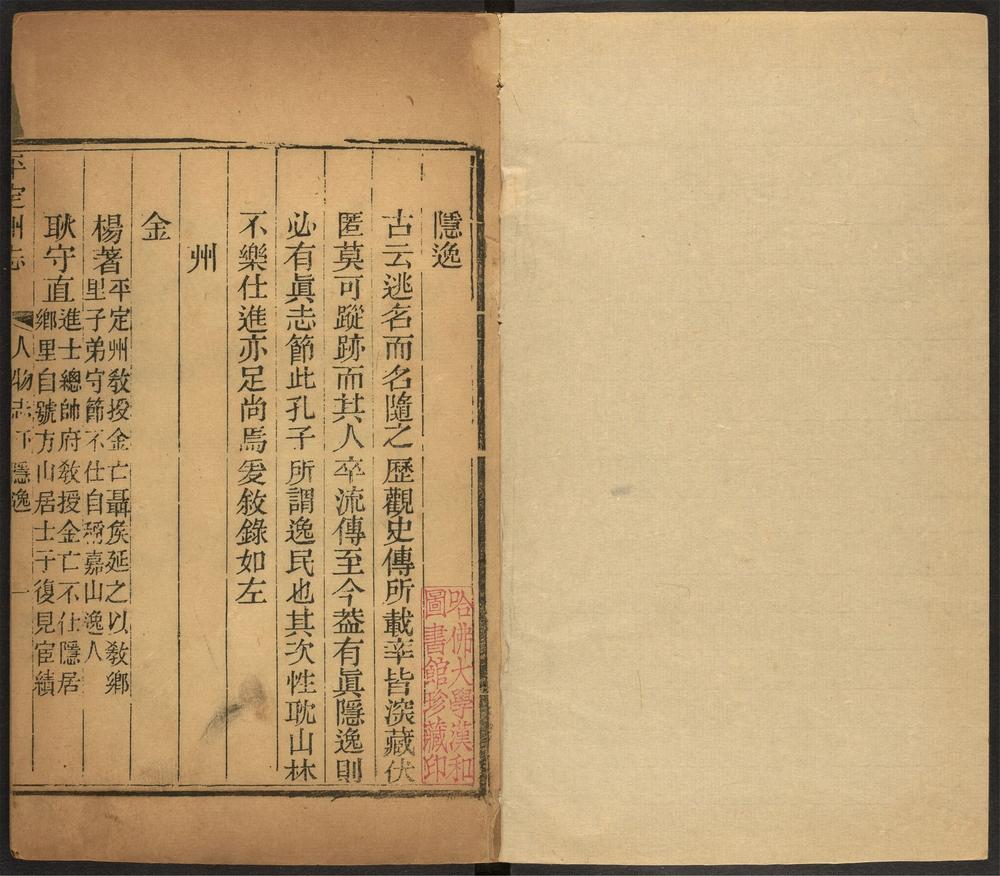 隱逸
古云逃名而名隨之歷觀史傳所載率皆深藏伏
匿莫可蹤跡而其人卒流傳至今葢有眞隱逸則
必有眞志節此孔子所謂逸民也其次性耽山林
不樂仕進亦足尚焉爰敘錄如左
州
金
楊著平定州教授金亡聶侯延之以敎鄉
里子弟守節不仕自號嘉山逸人
耿守直進士總帥府敎授金亡不仕隱居
鄉里自號方山居士于復見宦績
平定州志 人物志下隱逸 一
哈佛大學漢和
圖書館珍藏印